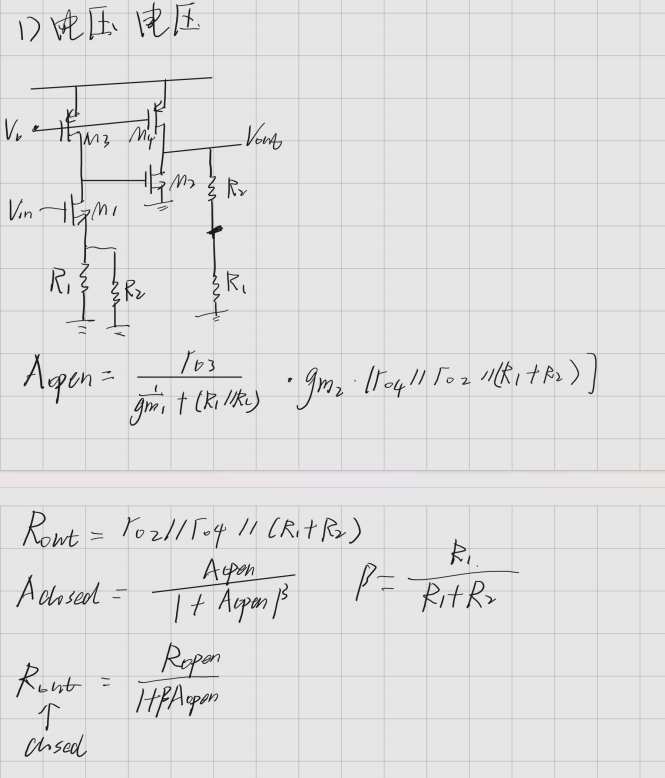 1) 电压 电压
Vb M3 M4 Vout
M2 R2
Vin M1
R1 R2 R1
Aopen = ro3 / (1/gm1 + (R1//R2)) · gm2 · [ro4 // ro2 // (R1+R2)]
Rout = ro2 // ro4 // (R1+R2)
Aclosed = Aopen / (1 + Aopen β)   β = R1 / (R1+R2)
Rout = Ropen / (1+βAopen)
↑
closed